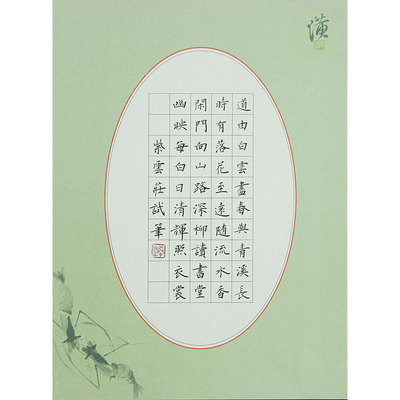 道由白雲盡春與青溪長
時有落花至遠隨流水香
閑門向山路深柳讀書堂
幽映每白日清輝照衣裳
紫雲莊試筆